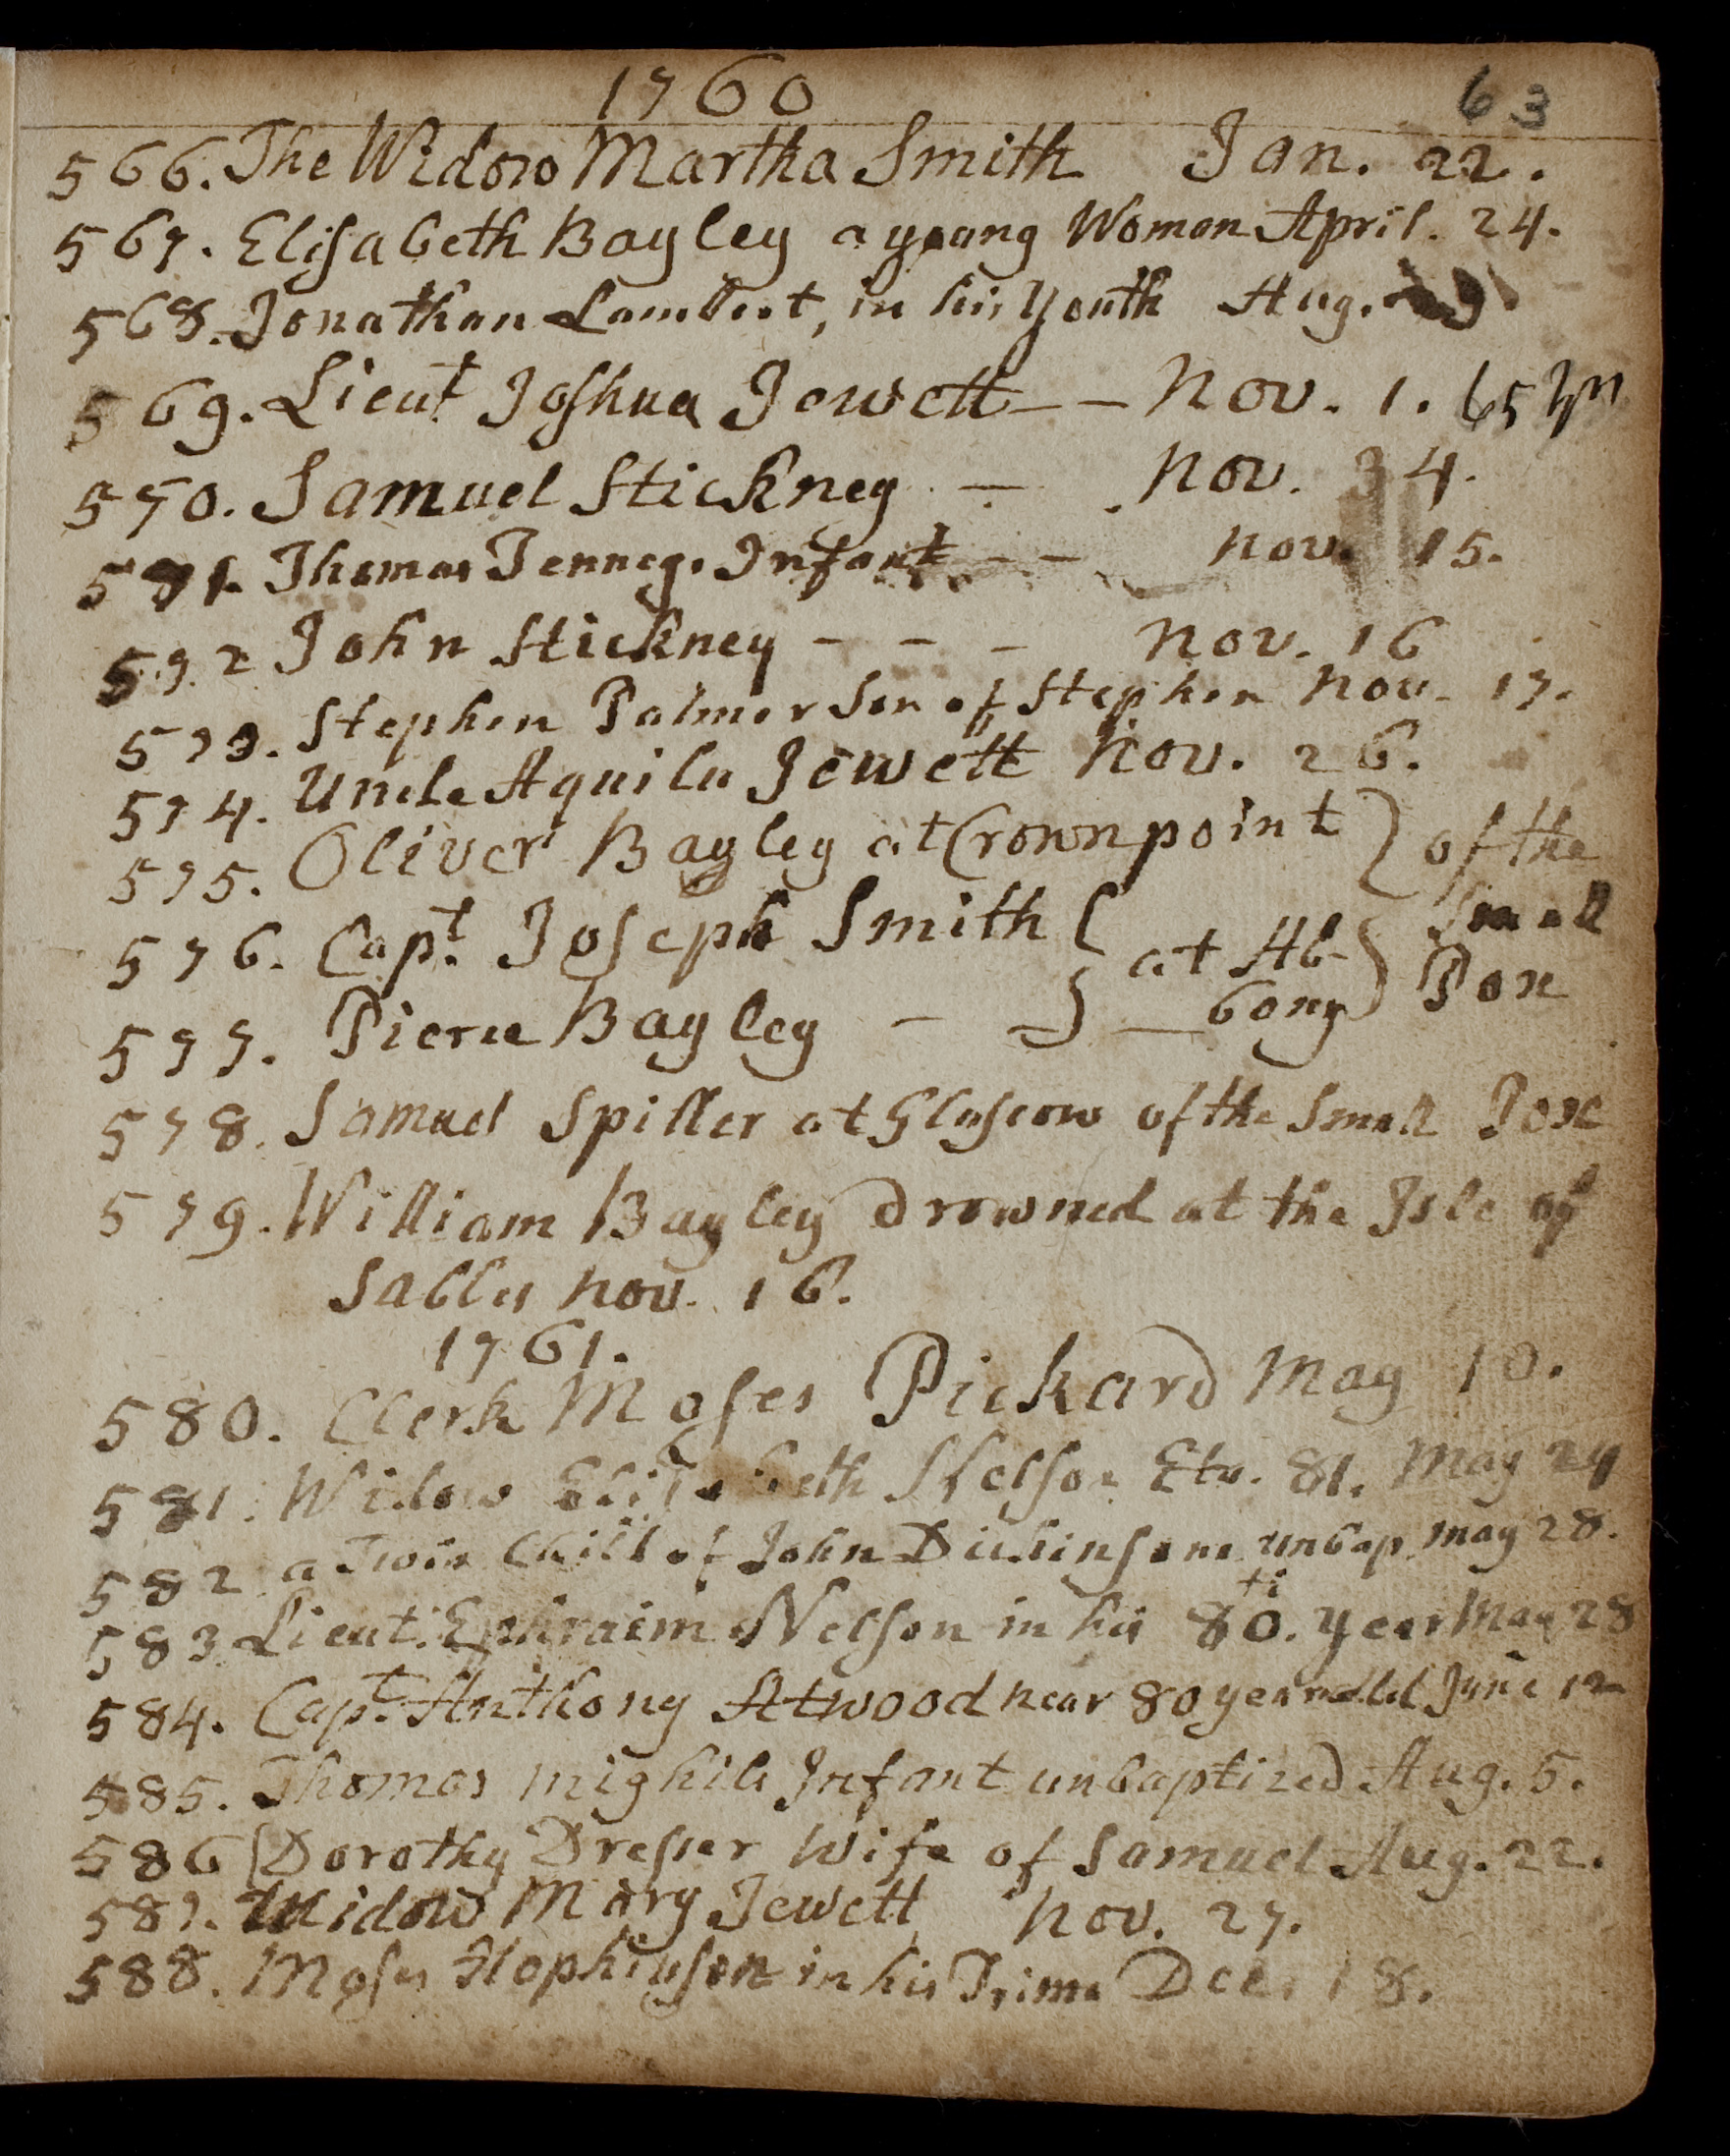 1760
63
566. The Widow Martha Smith Jan. 22.
567. Elisabeth Bayley a young Woman April. 24.
568. Jonathan Lambert, in his Youth Aug.
569. Lieut Joshua Jewett - - Nov. 1. 65
570. Samuel Stickney - Nov. 4.
571. Thomas Tenneys Infant - - Nov. 15.
572 John Stickney - - - Nov. 16
573. Stephen Palmer Son of Stephen Nov. 17.
574. Uncle Aquila Jewett Nov. 26.
575. Oliver Bayley at Crownpoint } of the
576. Capt. Joseph Smith { at Al- } Small
577. Pierce Bayley - } bony Pox
578. Samuel Spiller at Glascow of the Small Pox
579. William Bayley Drowned at the Isle of
Sables Nov. 16.
1761.
580. Clerk Moses Pickard May 10.
581. Widow Elisabeth Nelson Etа. 81. May 24
582 a Twin Child of John Dickinsons unbap. may 28.
583 Lieut. Ephraim Nelson in his 80.ti year May 28
584. Capt. Anthony Atwood near 80 years old June 12
585. Thomas Mighils Infant unbaptized Aug. 5.
586 Dorothy Dresser Wife of Samuel Aug. 22.
587. Widow Mary Jewett Nov. 27.
588. Moses Hopkinson in his Prime Dec. 18.